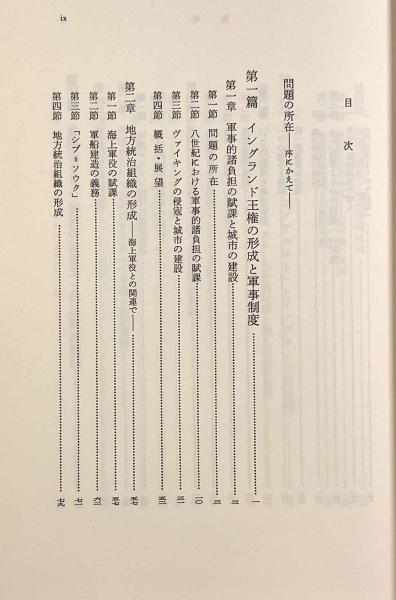 目次
問題の所在――序にかえて――
第一篇 イングランド王権の形成と軍事制度……一
第一章 軍事的諸負担の賦課と城市の建設……三
第一節 問題の所在……三
第二節 八世紀における軍事的諸負担の賦課……一〇
第三節 ヴァイキングの侵寇と城市の建設……三一
第四節 概括・展望……五二
第二章 地方統治組織の形成――海上軍役との関連で――……五七
第一節 海上軍役の賦課……五七
第二節 軍船建造の義務……六三
第三節 「シプ=ソウク」……七一
第四節 地方統治組織の形成……七九
ix